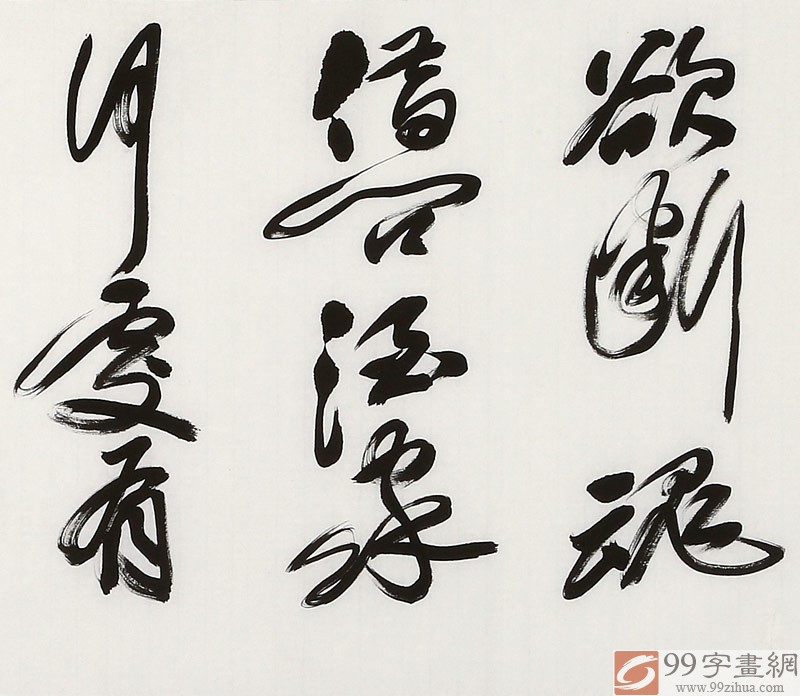 欲断魂
借问酒家
何处有
99字畫網
www.99zihua.com